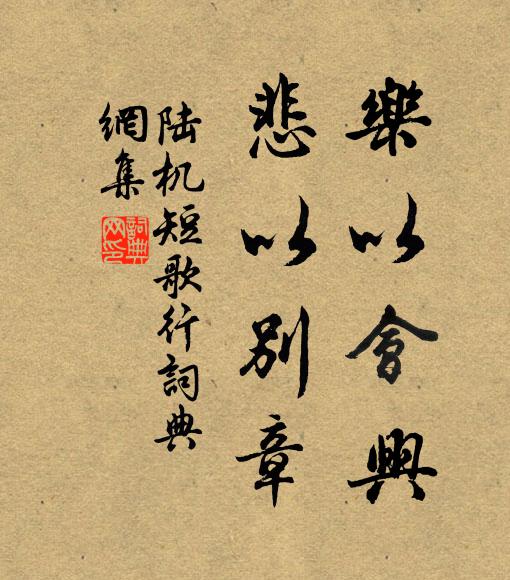 樂以會興
悲以別章
陆机短歌行詞典
網集
詞典
网印